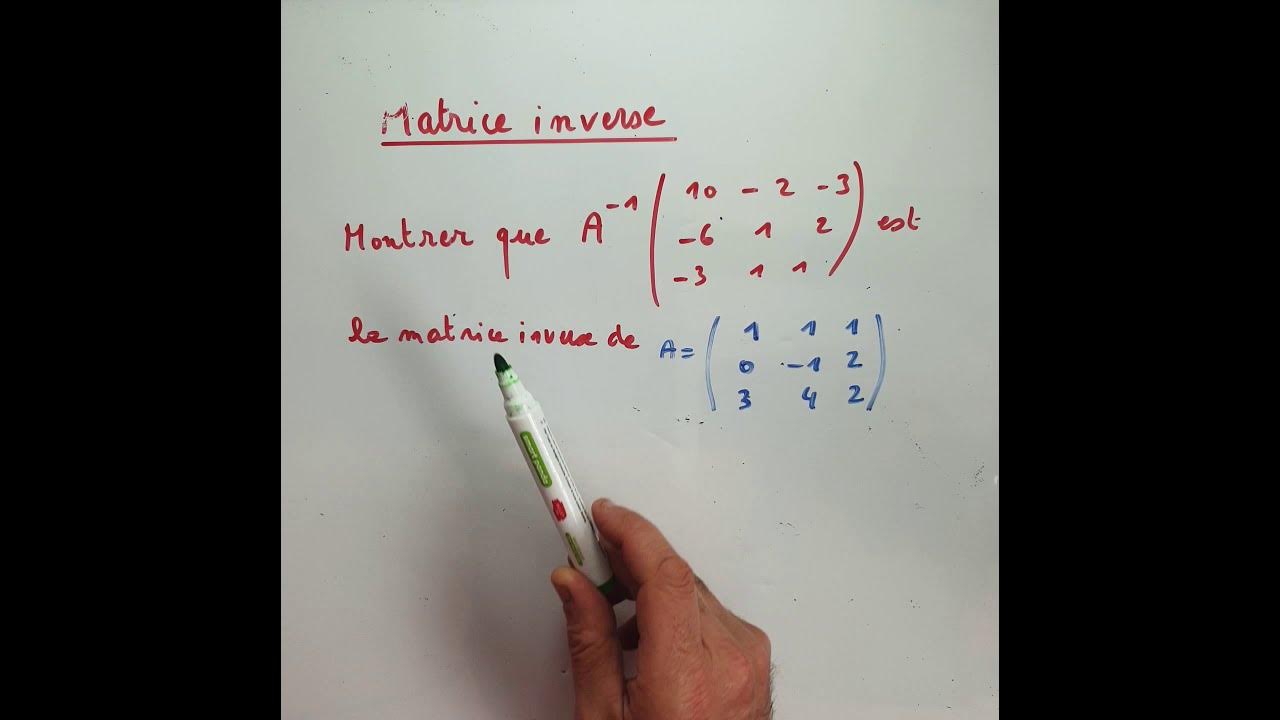 Matrice inverse
Montrer que A⁻¹ ( 10 -2 -3 ) est
( -6 1 2 )
( -3 1 1 )
la matrice inverse de A = ( 1 1 1 )
( 0 -1 2 )
( 3 4 2 )